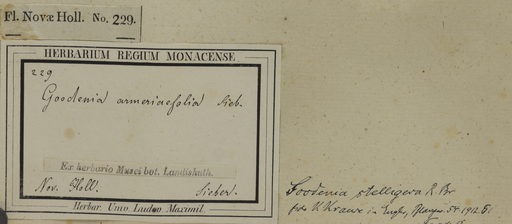 Fl. Novæ Holl. No. 229.
HERBARIUM REGIUM MONACENSE
229
Goodenia armeriaefolia Sieb.
Ex herbario Musei bot. Landishuth.
Nov. Holl. Sieber.
Herbar. Univ. Ludov. Maximil.
Goodenia stelligera R. Br
fide K. Krause in Engler, Pflanzenr. 54. 1912. 61